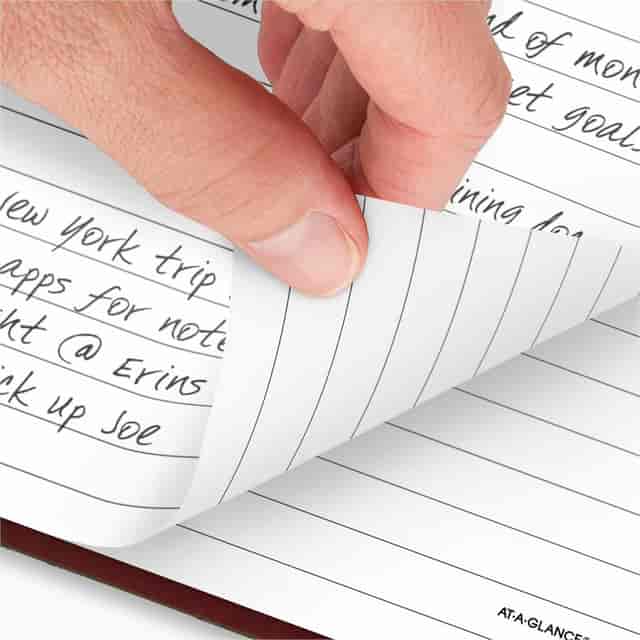 d of mon
et goals
ining
ew York trip
apps for note
ht @ Erins
ck up Joe
AT·A·GLANCE®